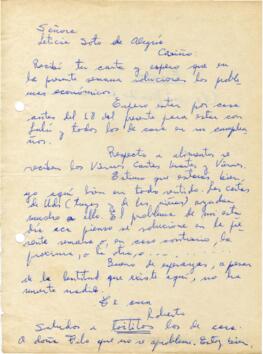 Señora
Leticia Soto de Alegría
Cariño
Recibí tu carta y espero que en
la presente semana soluciones los problemas
económicos.
Espero estar por casa
antes del 18 del presente para estar con
Lulú y todos los de casa en su cumplea
ños.
Respecto a alimentos se
reciben los Viernes Cartas Martes y Viernes.
Estimo que estarás bien,
yo aquí bien en todo sentido. Las cartas
de Uds (Tuyas y de las niñas) ayudan
mucho a ello. El problema de mi esta
día acá pienso se solucione en la pre
sente semana o, en caso contrario, la
próxima, o la otra, ...
Bueno de esperanzas, a pesar
de la lentitud que existe aquí, no ha
muerto nadie.
Te ama
Roberto
Saludos a toititos los de casa.
A doña Filo que no se aprobleme. Estoy bien.